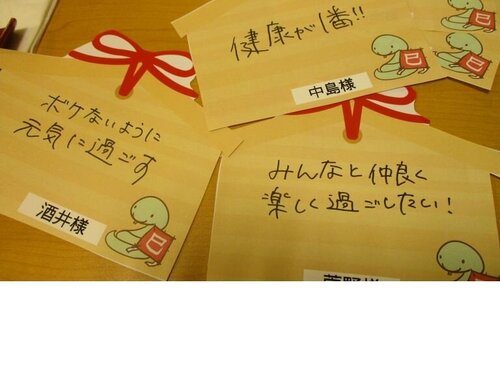 健康が1番!!
中島様
巳
巳
巳
ボケないように
元気に過ごす
酒井様
巳
みんなと仲良く
楽しく過ごしたい!
巳